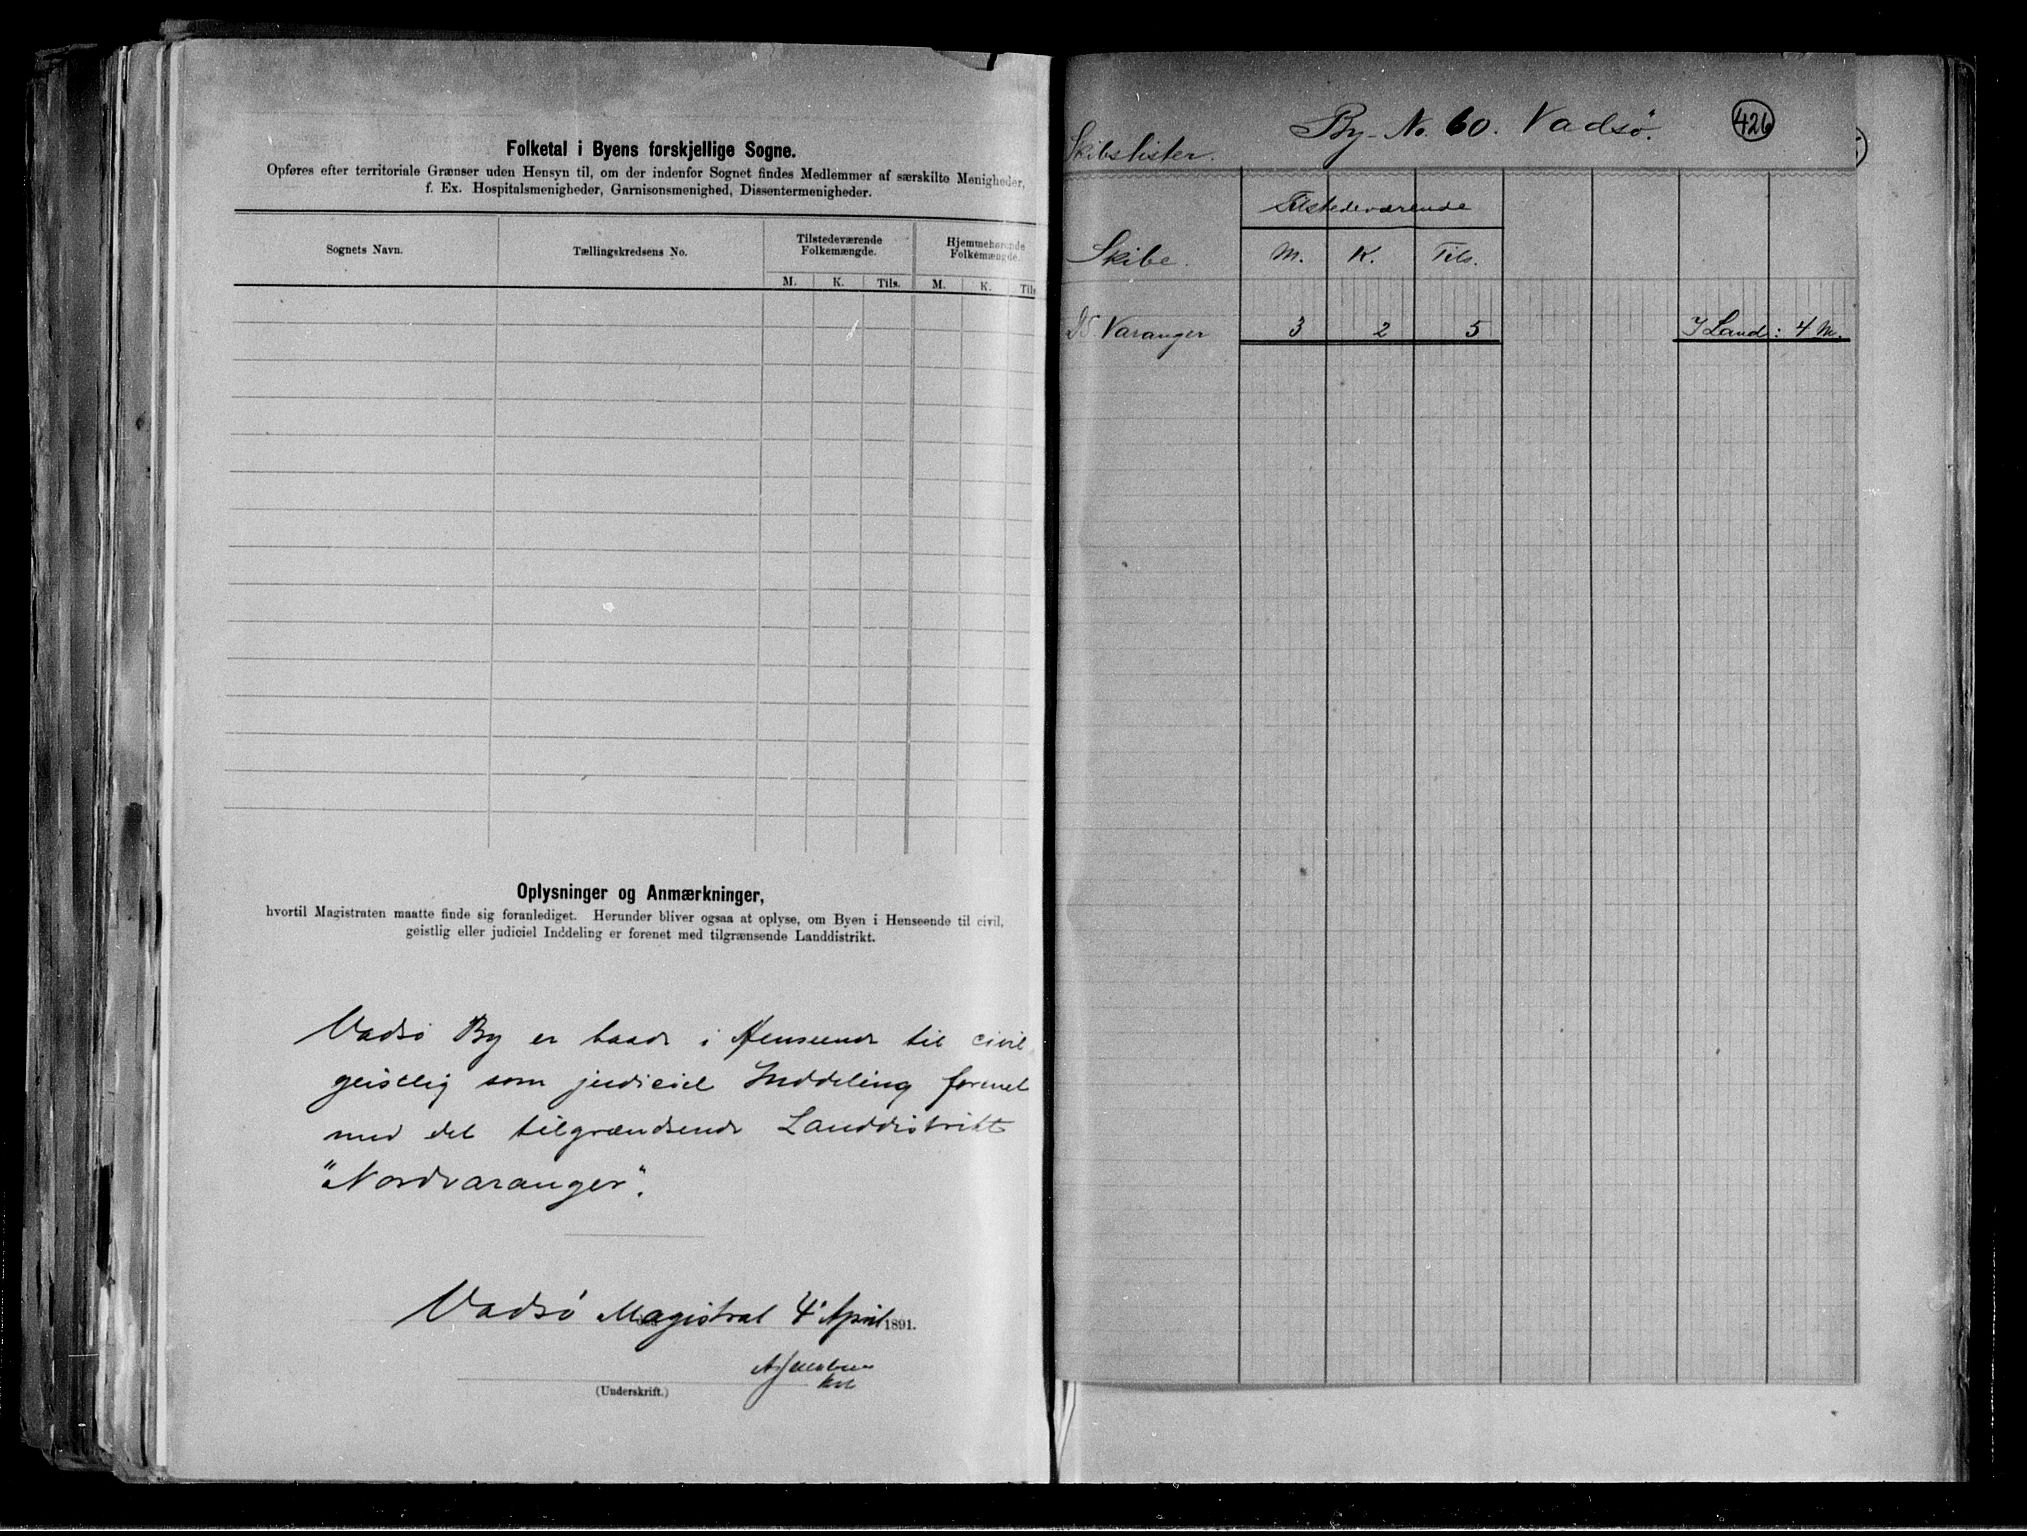 Folketal i Byens forskjellige Sogne.
Opføres efter territoriale Grænser uden Hensyn til, om der indenfor Sognet findes Medlemmer af særskilte Menigheder,
f. Ex. Hospitalsmenigheder, Garnisonsmenighed, Dissentermenigheder.
Sognets Navn.
Tællingskredsens No.
Tilstedeværende
Folkemængde.
Hjemmehørende
Folkemængde.
M. K. Tils. M. K. Tils
Oplysninger og Anmærkninger,
hvortil Magistraten maatte finde sig foranlediget. Herunder bliver ogsaa at oplyse, om Byen i Henseende til civil,
geistlig eller judiciel Inddeling er forenet med tilgrænsende Landdistrikt.
Vadsö By er baade i Henseende til civil
geistlig som judiciel Inddeling forenet
med det tilgrændsende Landdistrikt
"Nordvaranger".
Vadsö Magistrat 4' April 1891.
(Underskrift.)
By-No. 60. Vadsö.
426
Skibslister.
Tilstedeværende
Skibe. M. K. Tils.
DS Varanger 3 2 5 I Land: 4 M.